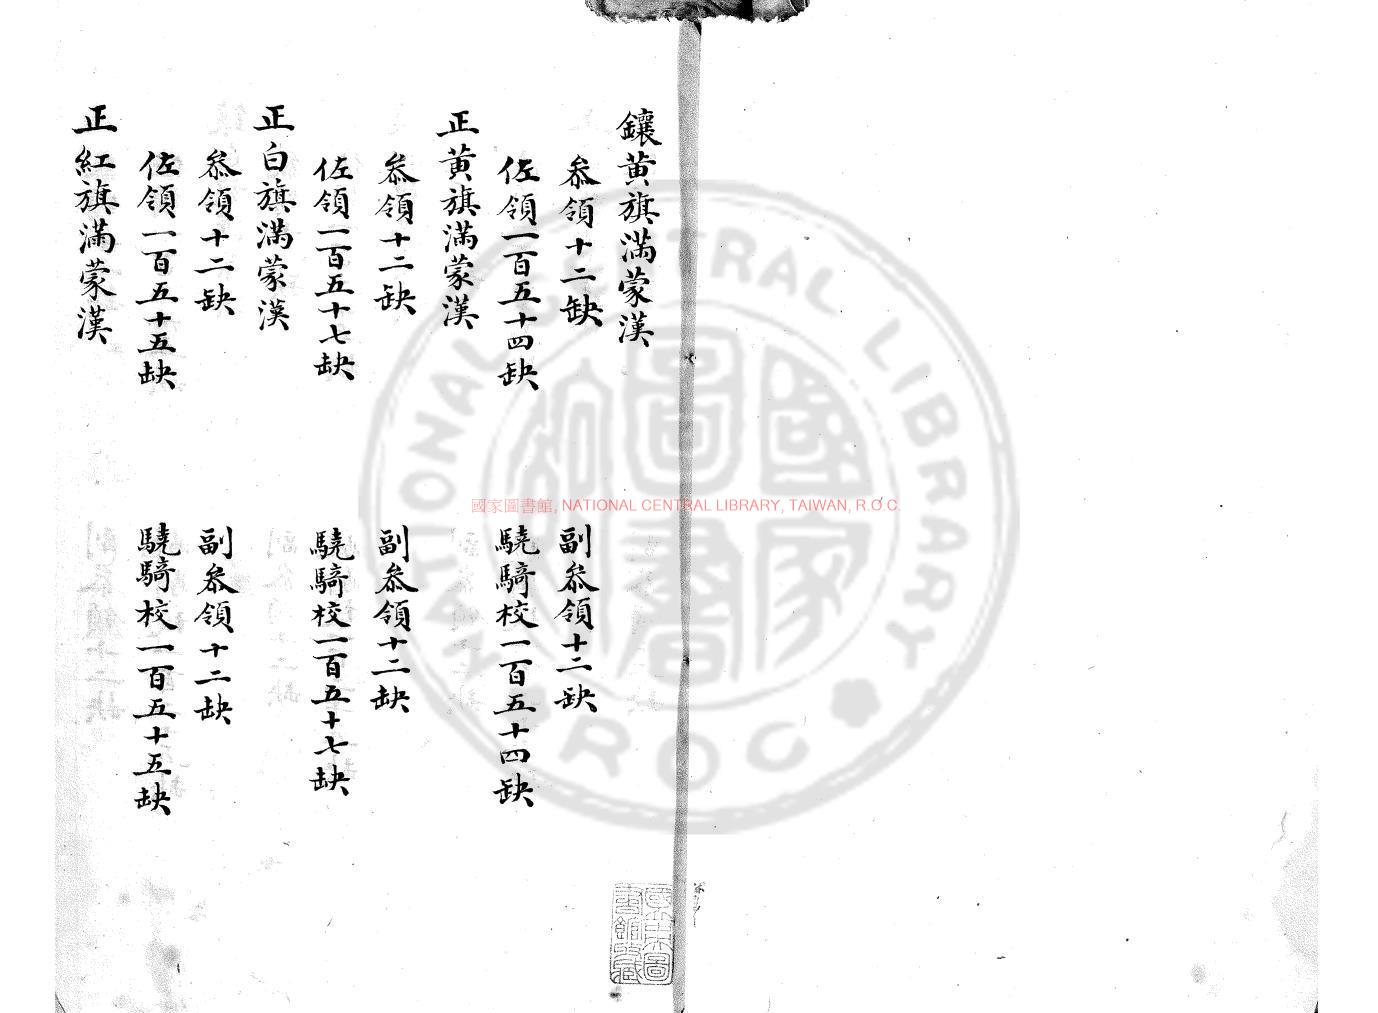 鑲黃旗滿蒙漢
叅領十二缺
副叅領十二缺
佐領一百五十四缺
驍騎校一百五十四缺
正黃旗滿蒙漢
叅領十二缺
副叅領十二缺
佐領一百五十七缺
驍騎校一百五十七缺
正白旗滿蒙漢
叅領十二缺
副叅領十二缺
佐領一百五十五缺
驍騎校一百五十五缺
正紅旗滿蒙漢
國家圖書館, NATIONAL CENTRAL LIBRARY, TAIWAN, R.O.C.
NATIONAL CENTRAL LIBRARY
ROC
國家圖書
國家圖書館藏